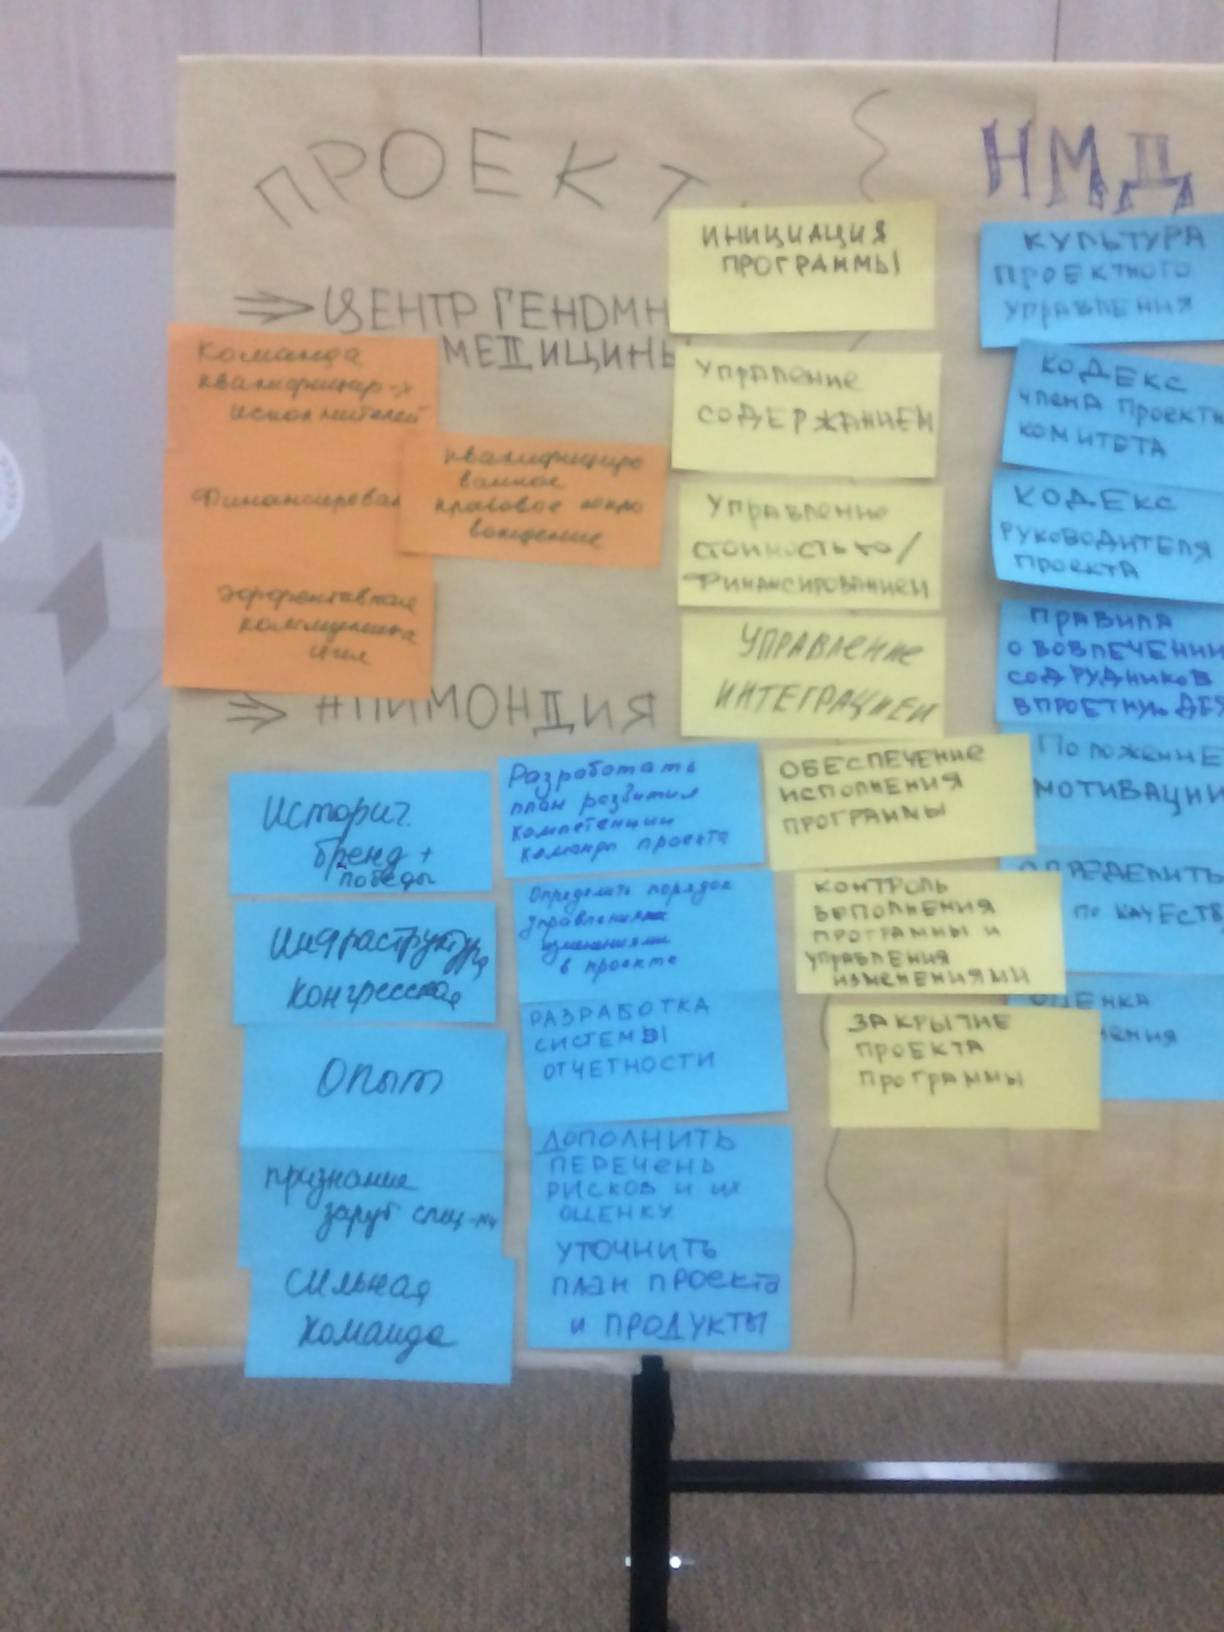 ПРОЕКТ
⇒ ЦЕНТР ГЕНОМН
МЕДИЦИНЫ
Команда
квалифицир-х
исполнителей
Финансирован
эффективная
коммуника
ция
квалифициро
ванное
правовое сопро
вождение
⇒ #ПИМОНДИЯ
Историч.
бренд +
победы
Инфраструктура
конгрессная
Опыт
признание
заруб спец-ми
сильная
команда
Разработать
план развития
компетенции
команды проекта
Определить порядок
управлениями
изменениями
в проекте
РАЗРАБОТКА
СИСТЕМЫ
ОТЧЕТНОСТИ
ДОПОЛНИТЬ
ПЕРЕЧЕНЬ
РИСКОВ И ИХ
ОЦЕНКУ
УТОЧНИТЬ
ПЛАН ПРОЕКТА
И ПРОДУКТЫ
ИНИЦИАЦИЯ
ПРОГРАММЫ
Управление
СОДЕРЖАНИЕМ
Управление
стоимостью/
Финансированием
УПРАВЛЕНИЕ
ИНТЕГРАЦИЕЙ
ОБЕСПЕЧЕНИЕ
ИСПОЛНЕНИЯ
ПРОГРАММЫ
КОНТРОЛЬ
ВЫПОЛНЕНИЯ
ПРОГРАММЫ И
УПРАВЛЕНИЯ
ИЗМЕНЕНИЯМИ
ЗАКРЫТИЕ
ПРОЕКТА
ПРОГРАММЫ
НМД
КУЛЬТУРА
ПРОЕКТНОГО
УПРАВЛЕНИЯ
КОДЕКС
члена Проектн
КОМИТЕТА
КОДЕКС
РУКОВОДИТЕЛЯ
ПРОЕКТА
ПРАВИЛА
О ВОВЛЕЧЕНИИ
СОДРУДНИКОВ
В ПРОЕТНУЮ ДЕЯ
Положение
МОТИВАЦИИ
ОПРЕДЕЛИТЬ
ПО КАЧЕСТВ
ОЦЕНКА